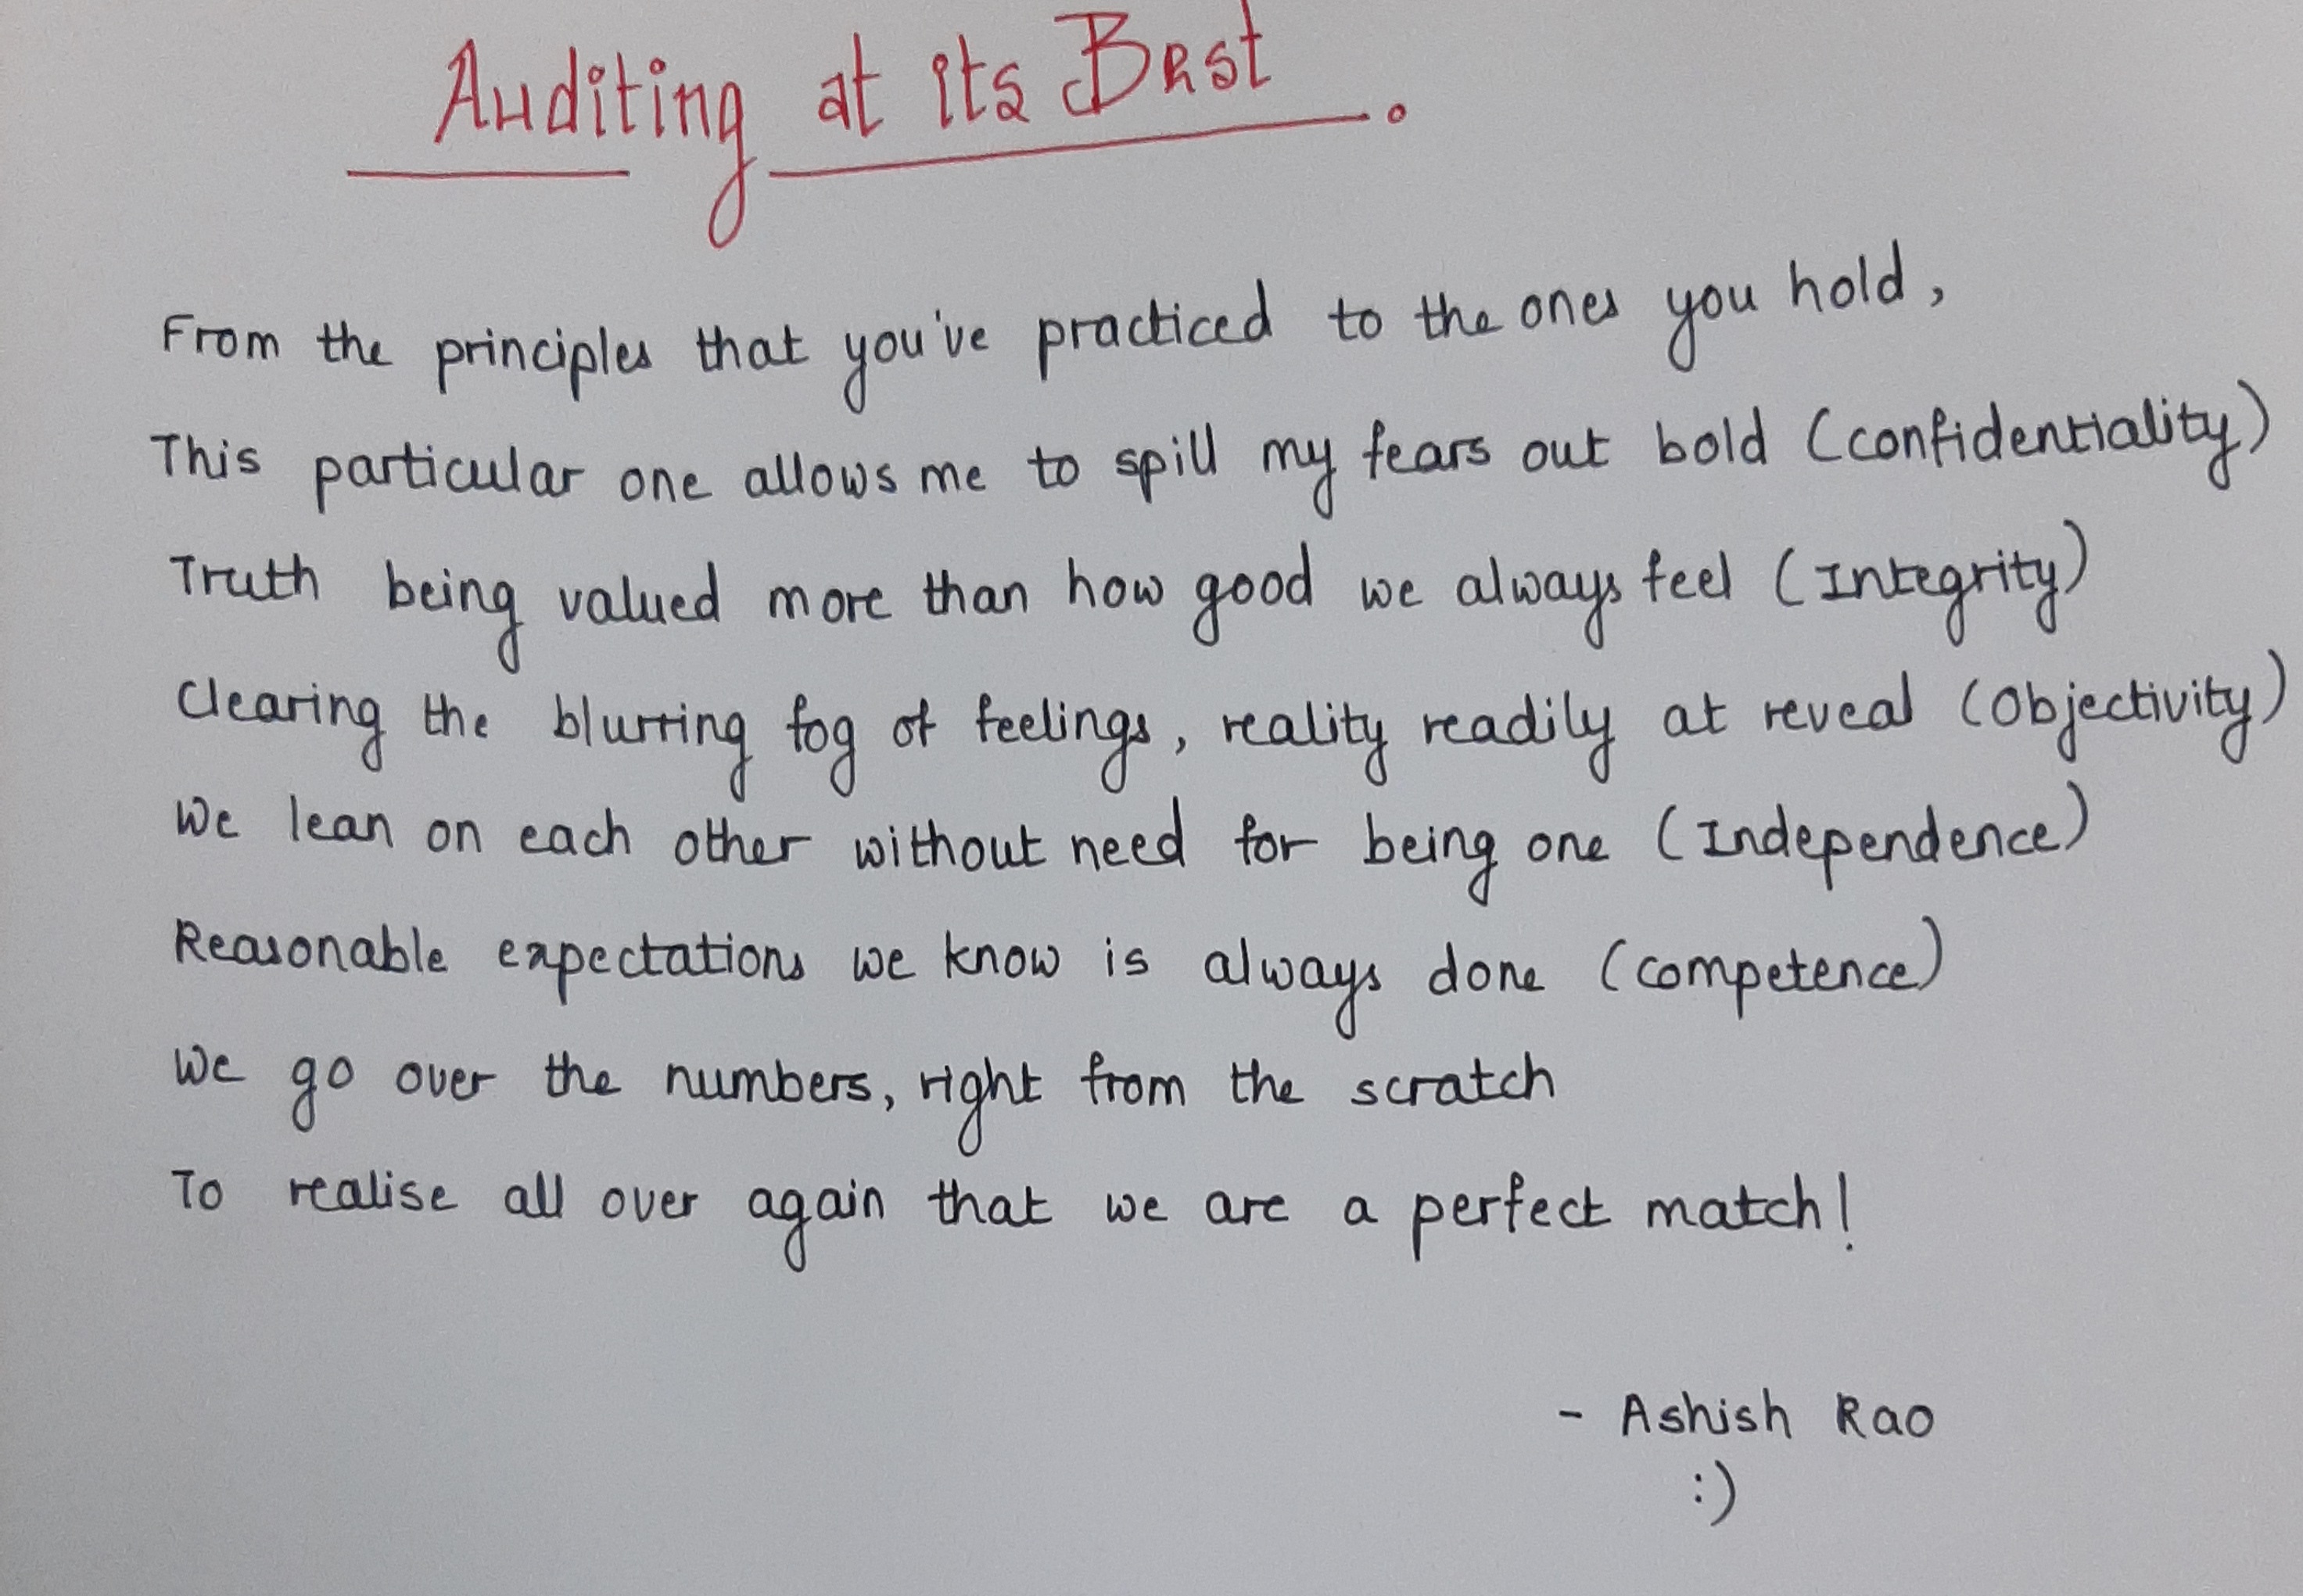 Auditing at its Best.
From the principles that you've practiced to the ones you hold,
This particular one allows me to spill my fears out bold (confidentiality)
Truth being valued more than how good we always feel (Integrity)
Clearing the blurring fog of feelings, reality readily at reveal (Objectivity)
We lean on each other without need for being one (Independence)
Reasonable expectations we know is always done (competence)
We go over the numbers, right from the scratch
To realise all over again that we are a perfect match!
- Ashish Rao
:)